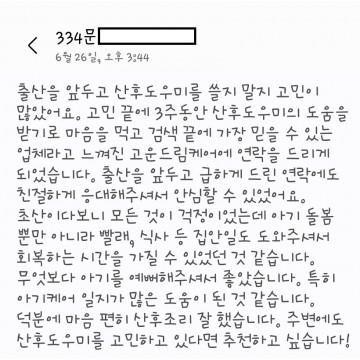 334문
6월 26일, 오후 3:44
출산을 앞두고 산후도우미를 쓸지 말지 고민이
많았어요. 고민 끝에 3주동안 산후도우미의 도움을
받기로 마음을 먹고 검색 끝에 가장 믿을 수 있는
업체라고 느껴진 고운드림케어에 연락을 드리게
되었습니다. 출산을 앞두고 급하게 드린 연락에도
친절하게 응대해주셔서 안심할 수 있었어요.
초산이다보니 모든 것이 걱정이었는데 아기 돌봄
뿐만 아니라 빨래, 식사 등 집안일도 도와주셔서
회복하는 시간을 가질 수 있었던 것 같습니다.
무엇보다 아기를 예뻐해주셔서 좋았습니다. 특히
아기케어 일지가 많은 도움이 된 것 같습니다.
덕분에 마음 편히 산후조리 잘 했습니다. 주변에도
산후도우미를 고민하고 있다면 추천하고 싶습니다!